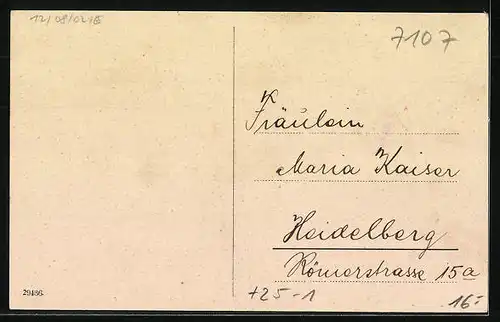 12/08/02/6
7107
Fräulein
Maria Kaiser
Heidelberg
Römerstrasse 15a
29486
+25-1
16.-